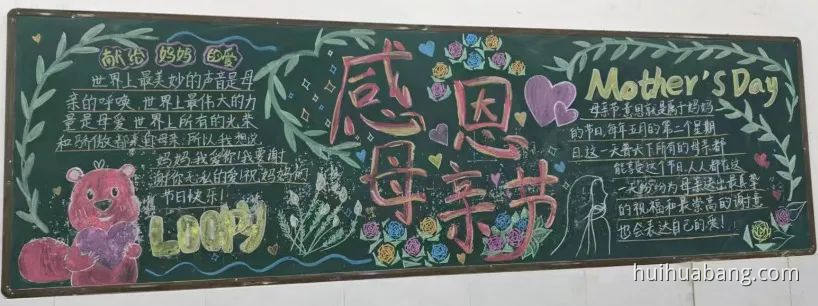 献给妈妈的爱
世界上最美妙的声音是母
亲的呼唤,世界上最伟大的力
量是母爱,世界上所有的光荣
和骄傲都来自母亲,所以我想说
妈妈,我爱你!我要谢
谢你无私的爱!祝妈妈们
节日快乐!
LOOPY
感恩
母亲节
Mother's Day
母亲节意思就是属于妈妈
的节日,每年五月的第二个星期
日,这一天普天下所有的母亲都
能享受这个节日,人人都在这
一天纷纷为母亲送出最真挚
的祝福和最崇高的谢意
也会表达自己的爱!
huihuabang.com